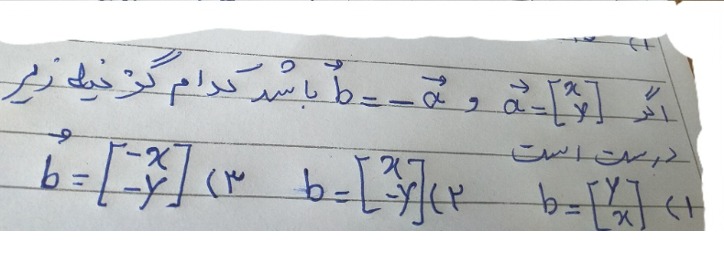 اگر $\vec{a}=\begin{bmatrix} x \\ y \end{bmatrix}$ و $\vec{b}=-\vec{a}$ باشد کدام گزینه زیر
درست است
۱) $b=\begin{bmatrix} y \\ x \end{bmatrix}$ ۲) $b=\begin{bmatrix} x \\ -y \end{bmatrix}$ ۳) $\vec{b}=\begin{bmatrix} -x \\ -y \end{bmatrix}$